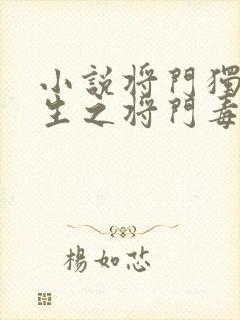 小說將門獨
生之將門毒
楊如芯